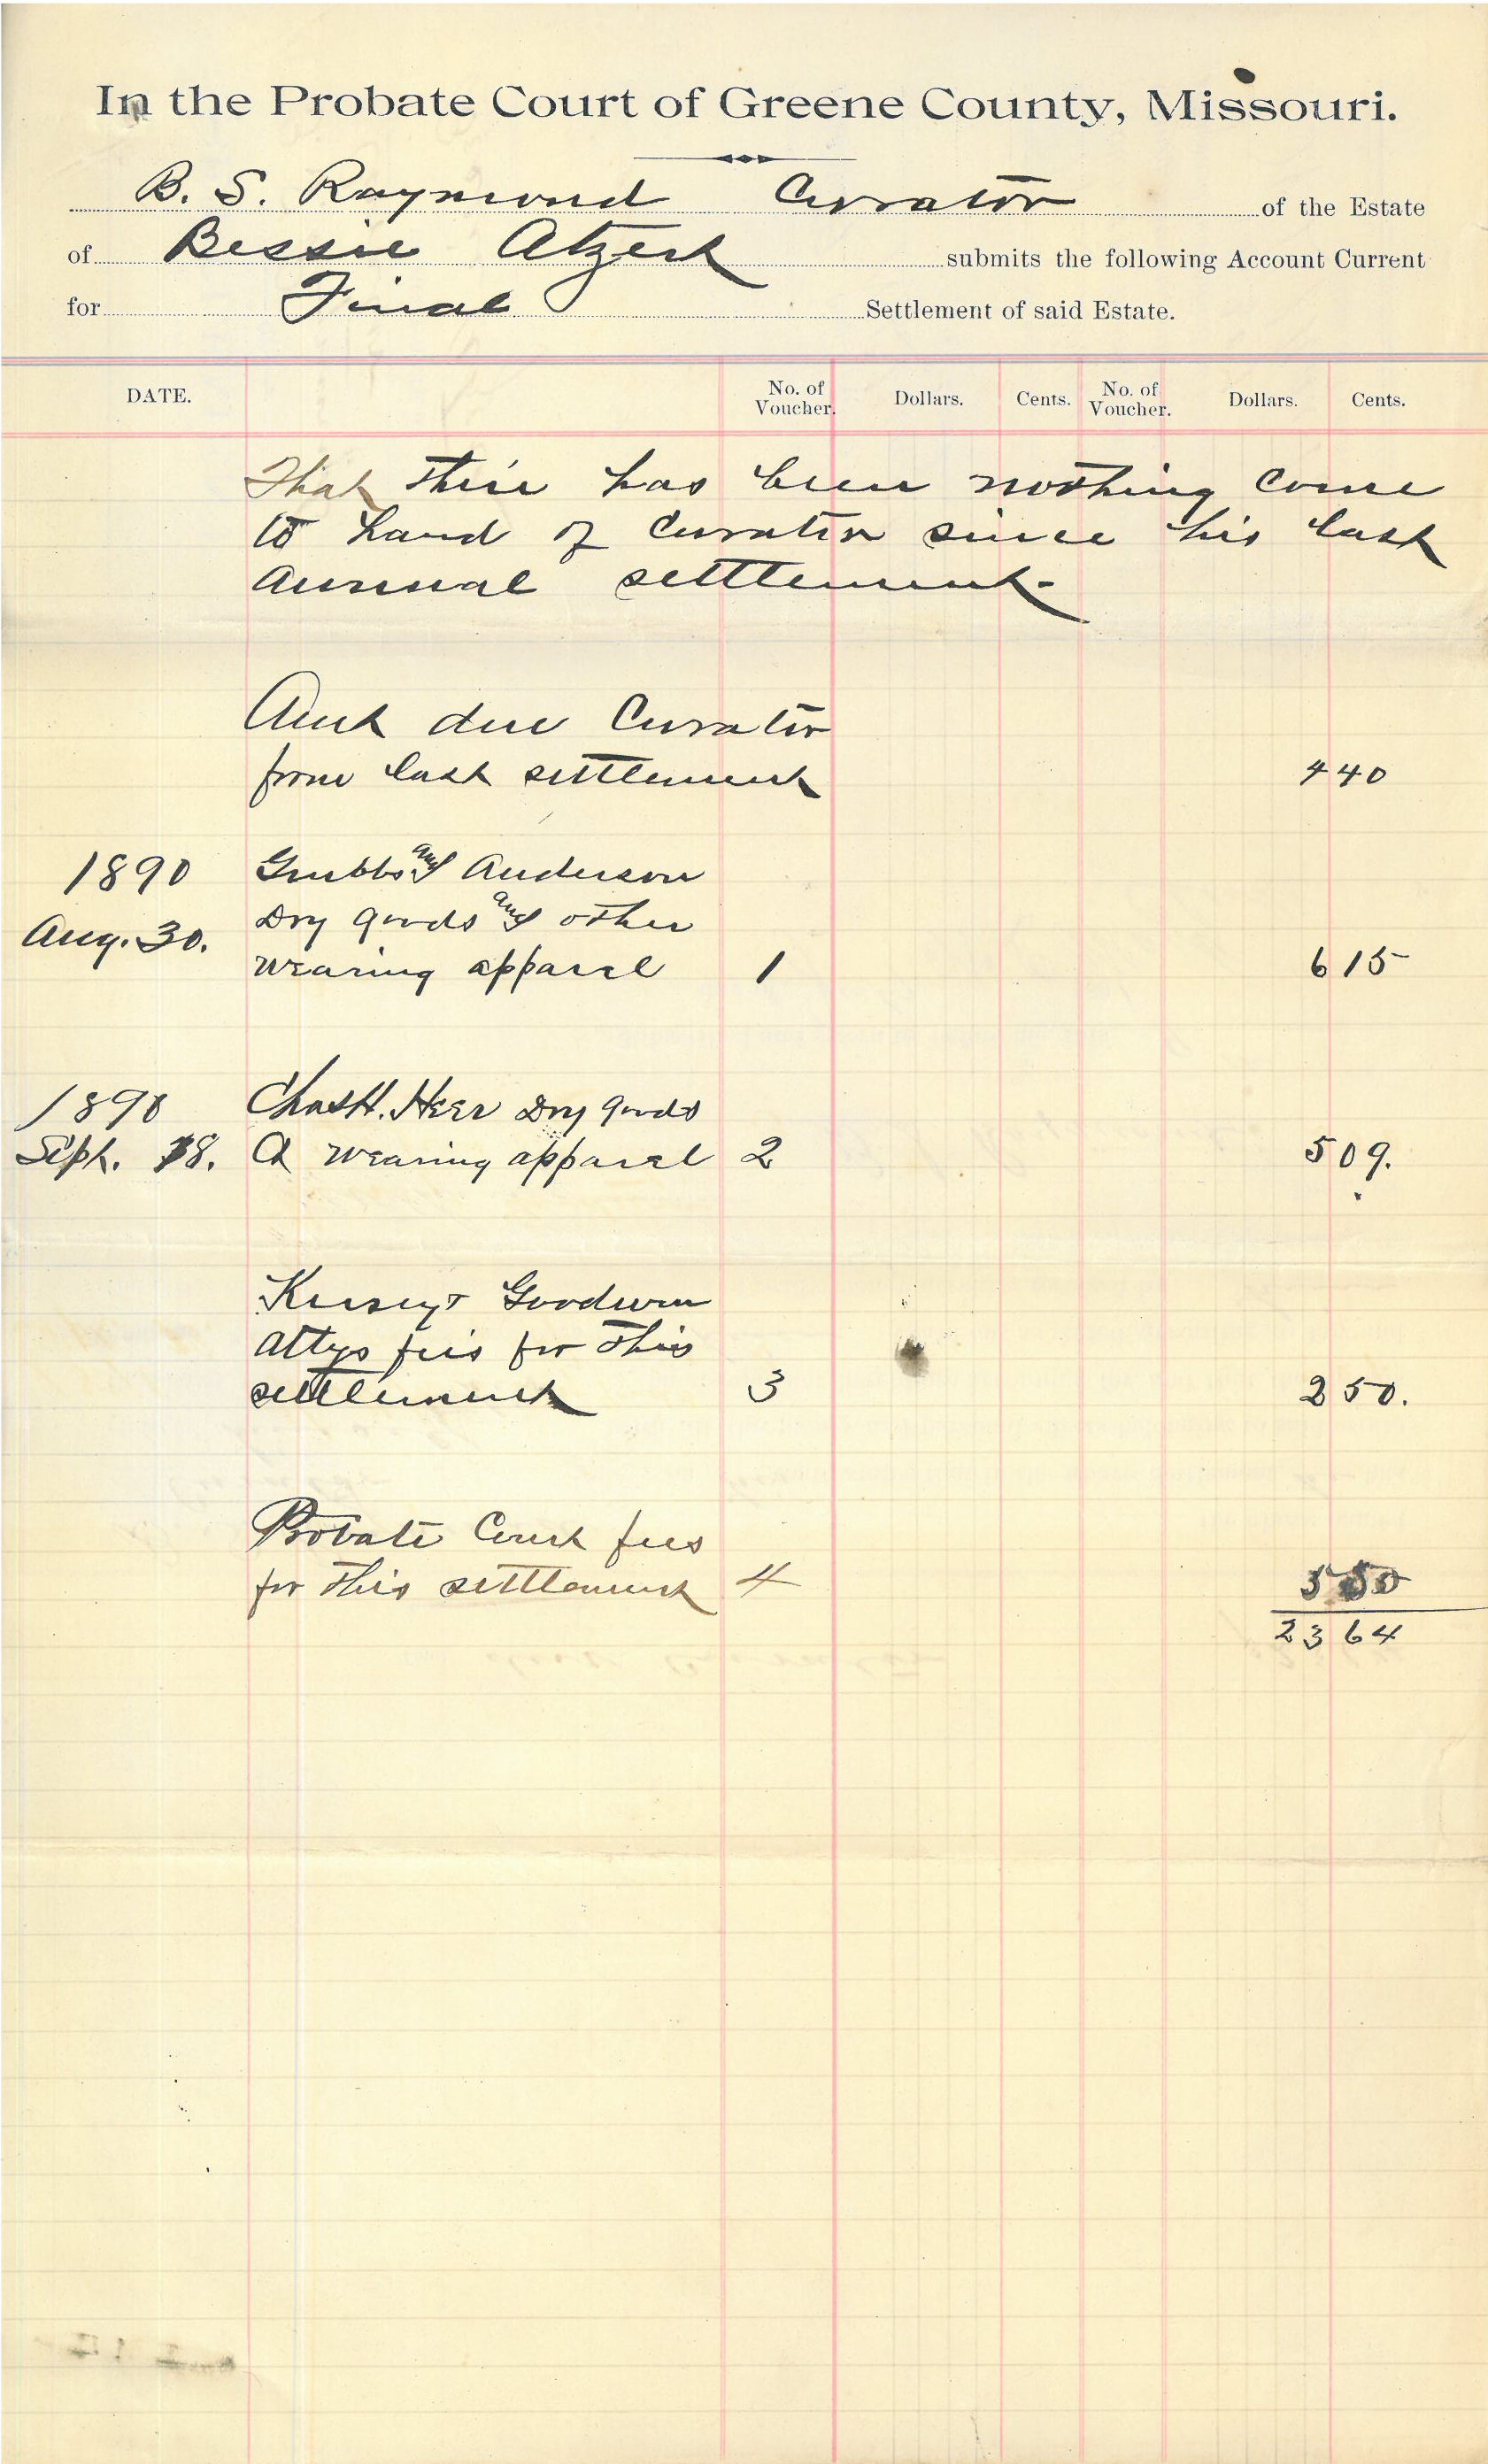 In the Probate Court of Greene County, Missouri.
B. S. Raymond Curator of the Estate
of Bessie Atzert submits the following Account Current
for Final Settlement of said Estate.
DATE. No. of Voucher. Dollars. Cents. No. of Voucher. Dollars. Cents.
That there has been nothing come
to hand of Curator since his last
annual settlement.
Amt due Curator
from last settlement 4 40
1890 Grubbs and Anderson
Aug. 30. Dry goods and other
wearing apparel 1 6 15
1890 Chas H. Herr Dry goods
Sept. 18. & wearing apparel 2 5 09.
Kersey & Goodwin
Attys fees for this
settlement 3 2 50.
Probate Court fees
for this settlement 4 5 50
23 64